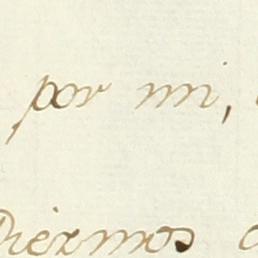 por mi,
Diezmos